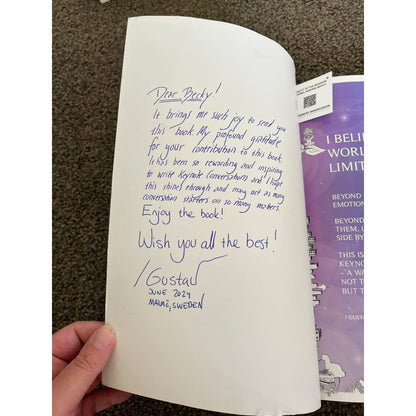 Dear Becky!
It brings me such joy to send you
this book. My profound gratitude
for your contribution to this book.
It has been so rewarding and inspiring
to write Keynote Conversations and I hope
this shines through and may act as many
conversation starters on so many matters.
Enjoy the book!
Wish you all the best!
/Gustav
JUNE 2024
MALMÖ, SWEDEN
I BELI
WORL
LIMIT
BEYOND
EMOTION
BEYOND
THEM, L
SIDE BY
THIS IS
KEYNO
– A WA
NOT
BUT T
/ GUSTA